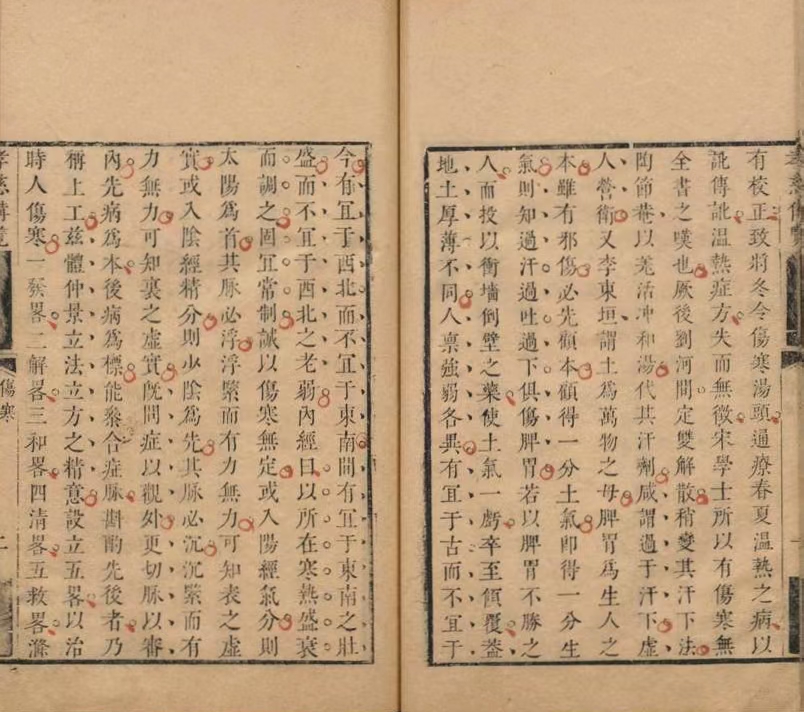 有校正致將冬令傷寒湯頭通療春夏溫熱之病以
訛傳訛溫熱症方失而無徵宋學士所以有傷寒無
全書之嘆也厥後劉河間定雙解散稍變其汗下法
陶節菴以羌活冲和湯代其汗劑咸謂過于汗下虛
人營衛又李東垣謂土為萬物之母脾胃為生人之
本雖有邪傷必先顧本顧得一分土氣即得一分生
氣則知過汗過吐過下俱傷脾胃若以脾胃不勝之
人而投以衝墻倒壁之藥使土氣一虧卒至傾覆蓋
地土厚薄不同人稟強弱各異有宜于古而不宜于
今有宜于西北而不宜于東南間有宜于東南之壯
盛而不宜于西北之老弱內經曰以所在寒熱盛衰
而調之固宜常制誠以傷寒無定或入陽經氣分則
太陽為首其脉必浮浮緊而有力無力可知表之虛
實或入陰經精分則少陰為先其脉必沉沉緊而有
力無力可知裏之虛實旣問症以觀外更切脉以審
內先病為本後病為標能叅合症脉斟酌先後者乃
稱上工茲體仲景立法立方之精意設立五畧以治
時人傷寒一發畧二解畧三和畧四清畧五救畧滌
傷寒
二